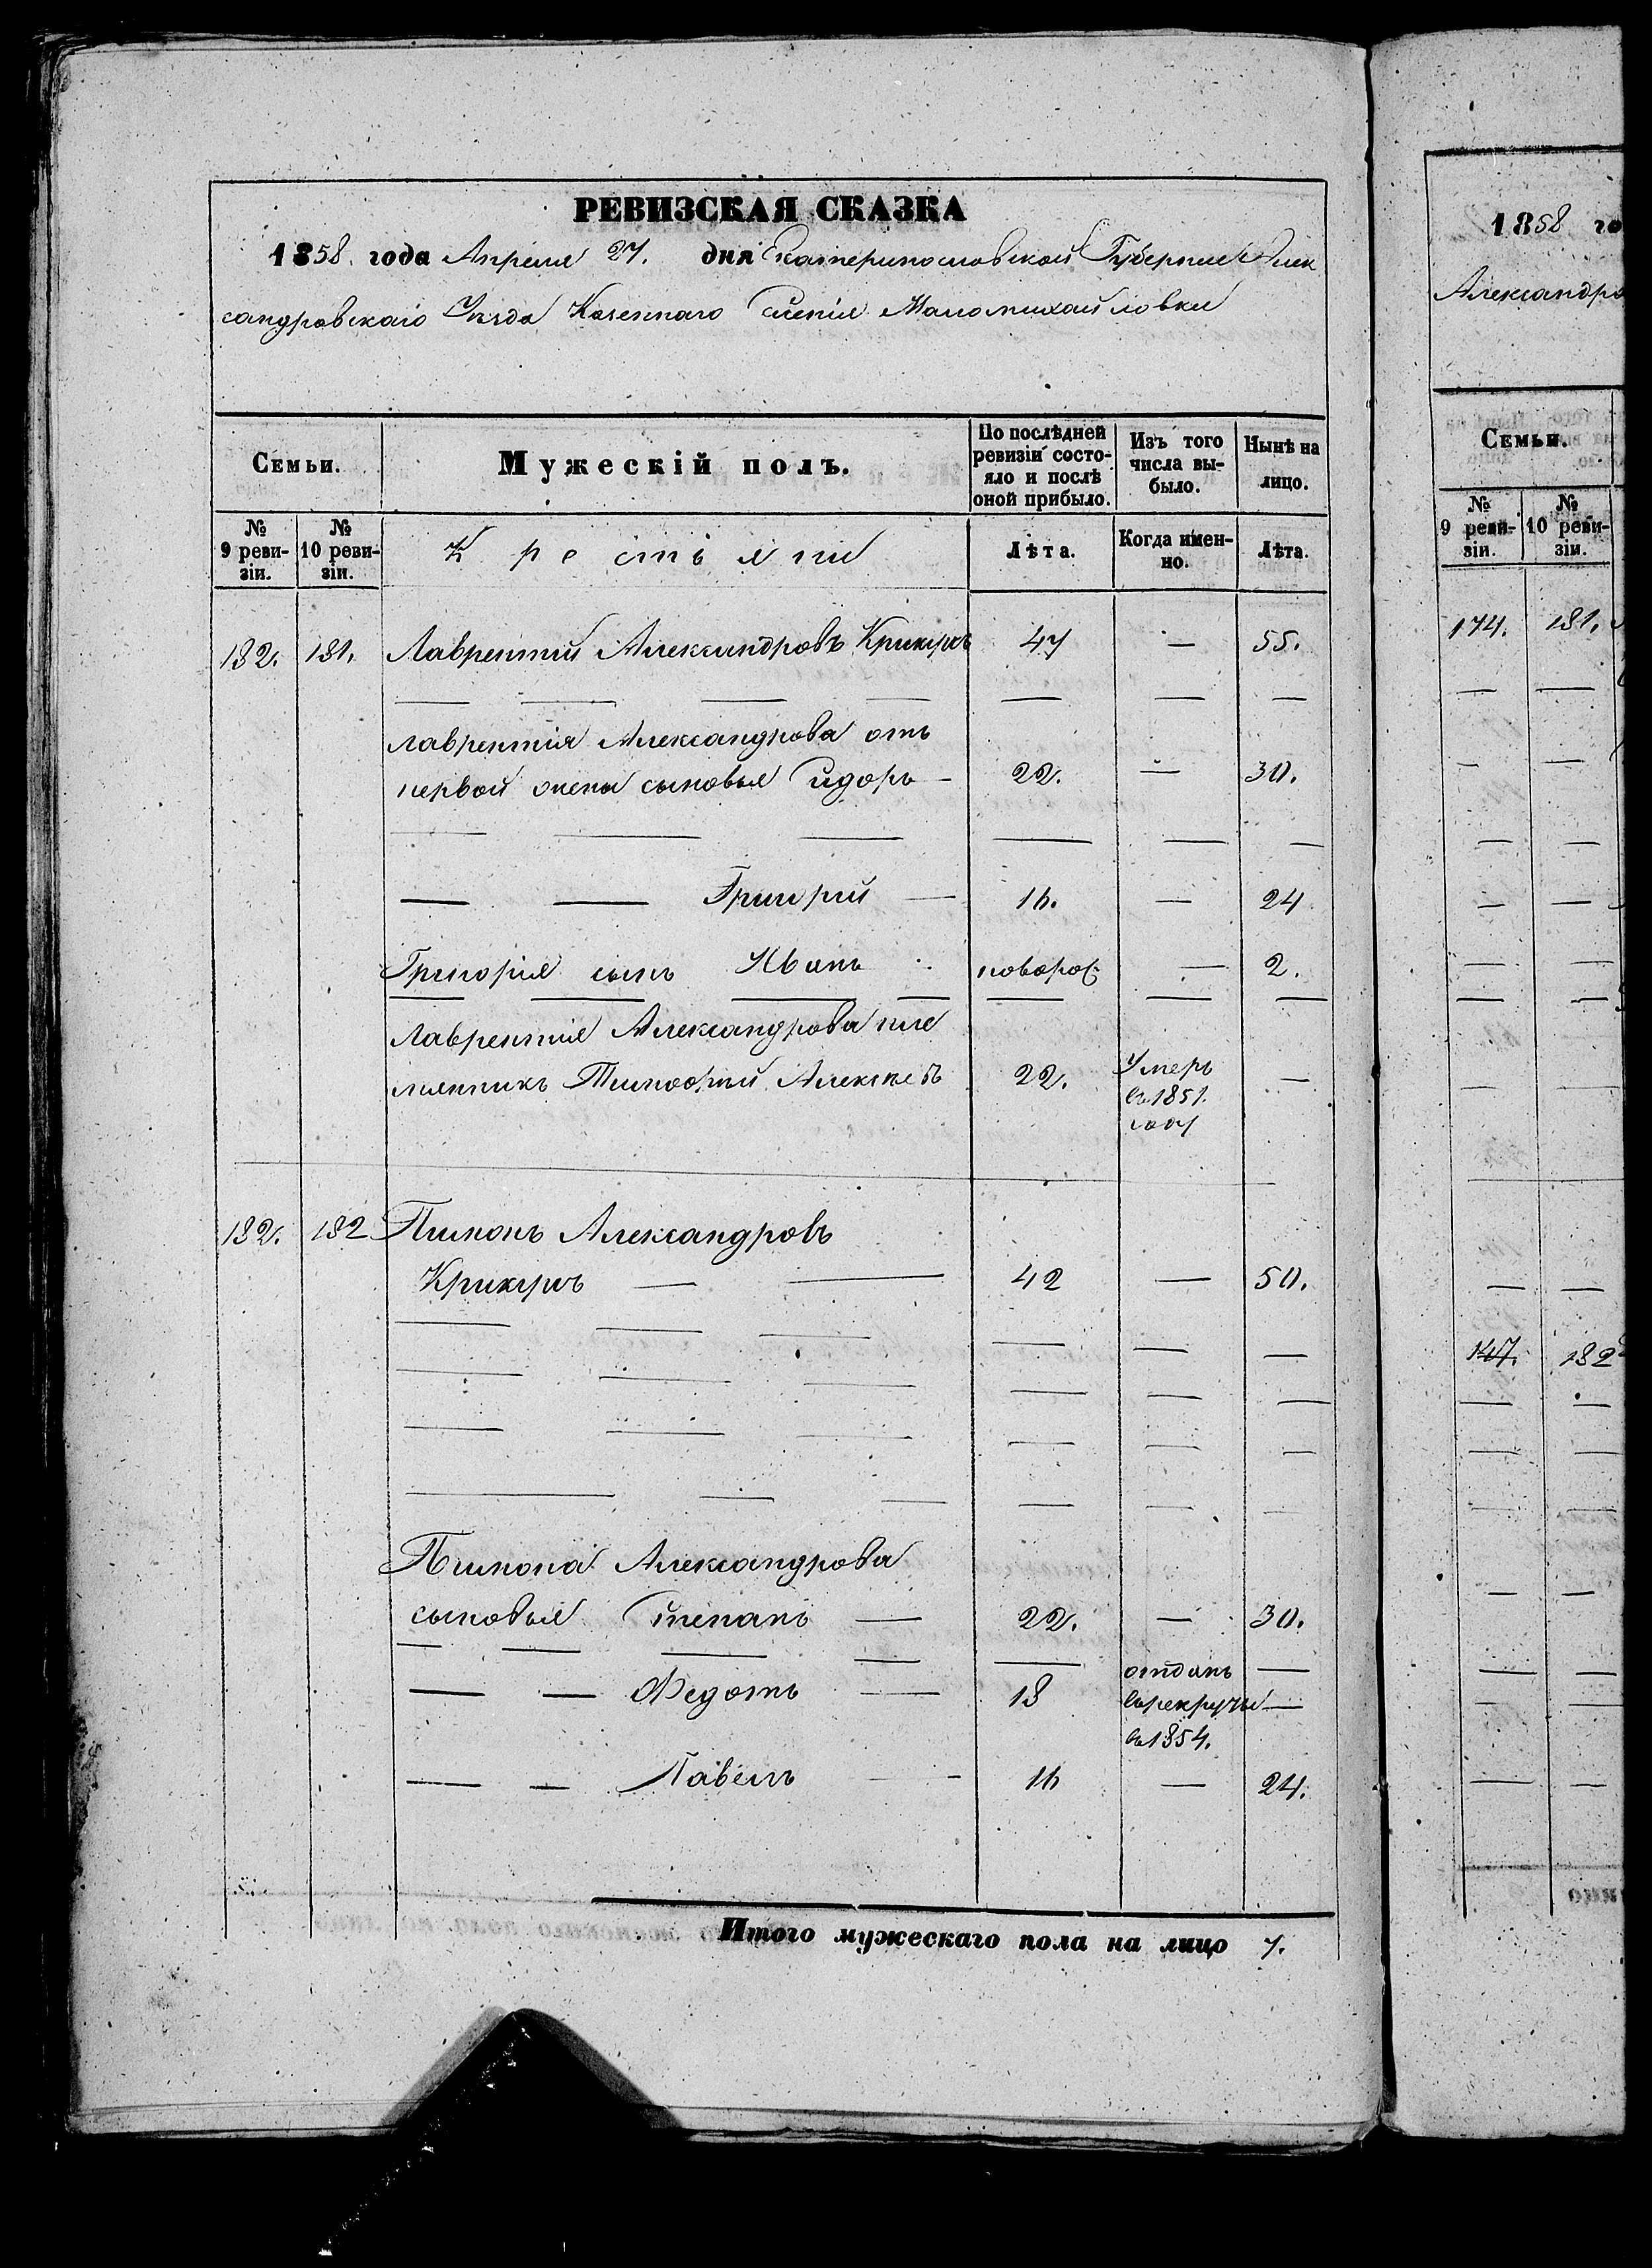 РЕВИЗСКАЯ СКАЗКА
1858. года Апреля 27. дня Екатеринославской Губернии Алек
сандровскаго Уезда Казеннаго Селенія Маломихайловки
Семьи.
Мужескій полъ.
По послѣдней ревизіи состо-
яло и послѣ
оной прибыло.
Изъ того
числа вы-
было.
Нынѣ на
лицо.
№ 9 реви-
зіи.
№ 10 реви-
зіи.
Крестьяни
Лѣта.
Когда имен-
но.
Лѣта.
182. 181. Лаврентій Александровъ Крикунъ 47 — 55.
Лаврентія Александрова отъ
первой жены сыновья Сидоръ — 22. — 30.
— — Григорій — 16. — 24
Григорія сынъ Иванъ новорож — 2.
Лаврентія Александрова пле
мянникъ Тимофѣй Алексѣевъ 22. Умеръ —
въ 1851.
году
182. 182 Пимонъ Александровъ
Крикунъ — — 42 — 50.
Пимона Александрова
сыновья Степанъ — 22. — 30.
— — Федотъ — 18 отданъ
въ рекруты —
въ 1854.
— — Павелъ — 16 — 24.
Итого мужескаго пола на лицо 7.
1858 го
Александро
Семьи.
№ 9 реви-
зіи.
№ 10 реви-
зіи.
174. 181.
147. 182